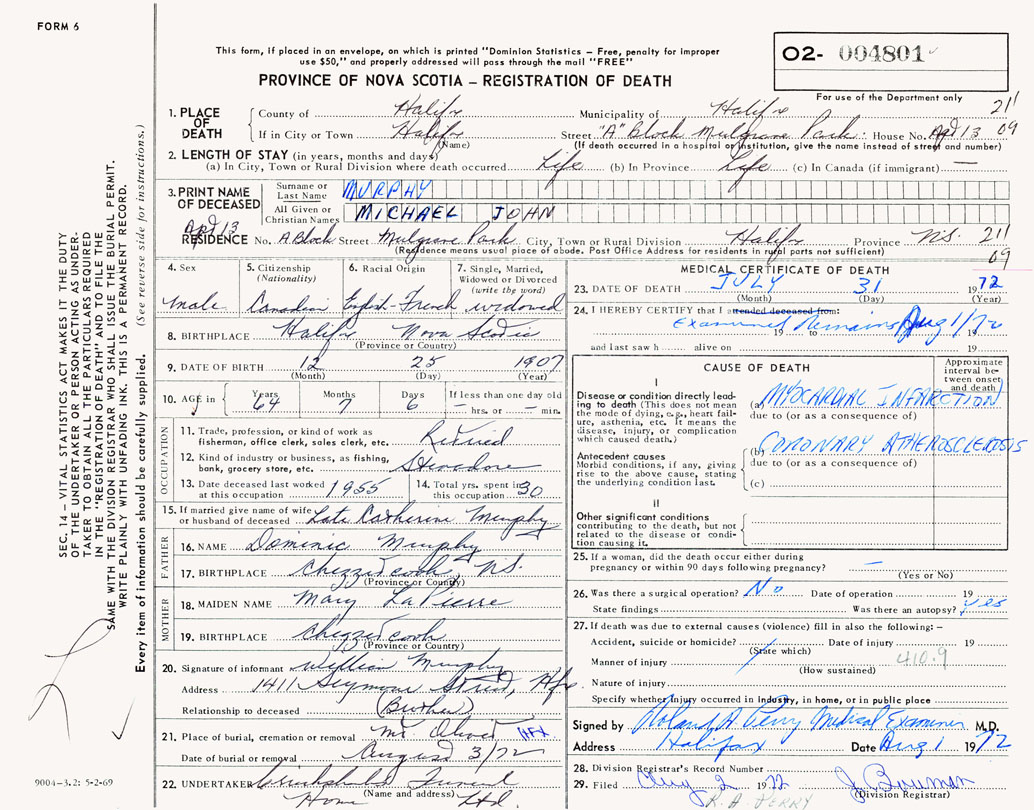 FORM 6
This form, if placed in an envelope, on which is printed "Dominion Statistics – Free, penalty for improper
use $50," and properly addressed will pass through the mail "FREE"
PROVINCE OF NOVA SCOTIA – REGISTRATION OF DEATH
O2- 004801
For use of the Department only
1. PLACE OF DEATH
County of Halifx Municipality of Halifx 211
If in City or Town Halifx (Name) Street "A" Block Mulgrave Park House No. Apt 13 09
(If death occurred in a hospital or institution, give the name instead of street and number)
2. LENGTH OF STAY (in years, months and days)
(a) In City, Town or Rural Division where death occurred Life (b) In Province Life (c) In Canada (if immigrant) —
3. PRINT NAME OF DECEASED
Surname or Last Name MURPHY
All Given or Christian Names MICHAEL JOHN
Apt 13
RESIDENCE No. A Block Street Mulgrave Park City, Town or Rural Division Halifx Province N.S. 211
(Residence means usual place of abode. Post Office Address for residents in rural parts not sufficient) 09
4. Sex male
5. Citizenship (Nationality) Canadian
6. Racial Origin English-French
7. Single, Married, Widowed or Divorced (write the word) widowed
8. BIRTHPLACE Halifx Nova Scotia
(Province or Country)
9. DATE OF BIRTH 12 25 1907
(Month) (Day) (Year)
10. AGE in Years 64 Months 7 Days 6 If less than one day old – hrs. or – min.
OCCUPATION
11. Trade, profession or kind of work as
fisherman, office clerk, sales clerk, etc. Retired
12. Kind of industry or business, as fishing,
bank, grocery store, etc. Stevadore
13. Date deceased last worked
at this occupation 1955
14. Total yrs. spent in
this occupation 30
15. If married give name of wife
or husband of deceased Late Catherine Murphy
FATHER
16. NAME Dominic Murphy
17. BIRTHPLACE Chezzetcook, N.S.
(Province or Country)
MOTHER
18. MAIDEN NAME Mary LaPierre
19. BIRTHPLACE Chezzetcook
(Province or Country)
20. Signature of informant William Murphy
Address 1411 Seymour Street, Hfx.
Relationship to deceased (Brother)
21. Place of burial, cremation or removal Mt. Olivet HFX
Date of burial or removal August 3/72
22. UNDERTAKER Cruikshank's Funeral
(Name and address) Home Ltd.
MEDICAL CERTIFICATE OF DEATH
23. DATE OF DEATH JULY 31 1972
(Month) (Day) (Year)
24. I HEREBY CERTIFY that I attended deceased from:
Examined Remains Aug 1/72
19 19
and last saw h alive on 19
CAUSE OF DEATH
Approximate interval between onset and death
I
Disease or condition directly leading to death (This does not mean the mode of dying, e.g., heart failure, asthenia, etc. It means the disease, injury, or complication which caused death.)
(a) MYOCARDIAL INFARCTION
due to (or as a consequence of)
Antecedent causes
Morbid conditions, if any, giving rise to the above cause, stating the underlying condition last.
(b) CORONARY ATHEROSCLEROSIS
due to (or as a consequence of)
(c)
II
Other significant conditions
contributing to the death, but not related to the disease or condition causing it.
25. If a woman, did the death occur either during
pregnancy or within 90 days following pregnancy? —
(Yes or No)
26. Was there a surgical operation? No Date of operation 19
State findings Was there an autopsy? yes
27. If death was due to external causes (violence) fill in also the following: –
Accident, suicide or homicide? Date of injury 19
(State which)
Manner of injury 410.9
(How sustained)
Nature of injury
Specify whether injury occurred in industry, in home, or in public place
Signed by Roland A Perry Medical Examiner M.D.
Address Halifax Date Aug 1 1972
28. Division Registrar's Record Number
29. Filed Aug 2 1972 J. Bowman
(Division Registrar)
R. A. PERRY
SEC. 14 – VITAL STATISTICS ACT MAKES IT THE DUTY
OF THE UNDERTAKER OR PERSON ACTING AS UNDER-
TAKER TO OBTAIN ALL THE PARTICULARS REQUIRED
IN THE "REGISTRATION OF DEATH" AND TO FILE THE
SAME WITH THE DIVISION REGISTRAR WHO SHALL ISSUE THE BURIAL PERMIT.
WRITE PLAINLY WITH UNFADING INK. THIS IS A PERMANENT RECORD.
Every item of information should be carefully supplied. (See reverse side for instructions.)
9004-3.2: 5-2-69